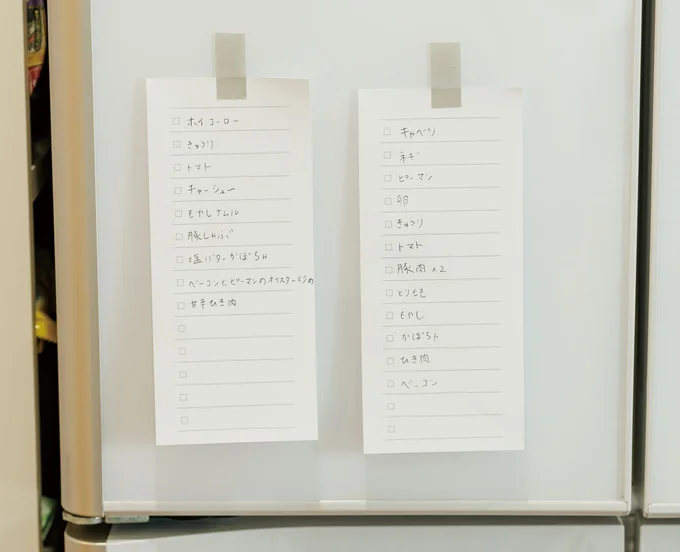 ホイコーロー
きゅうり
トマト
チャーシュー
もやしナムル
豚しゃぶ
塩バターかぼちゃ
ベーコンとピーマンのオイスター炒め
甘辛ひき肉
キャベツ
ネギ
ピーマン
卵
きゅうり
トマト
豚肉 x2
とりもも
もやし
かぼちゃ
ひき肉
ベーコン